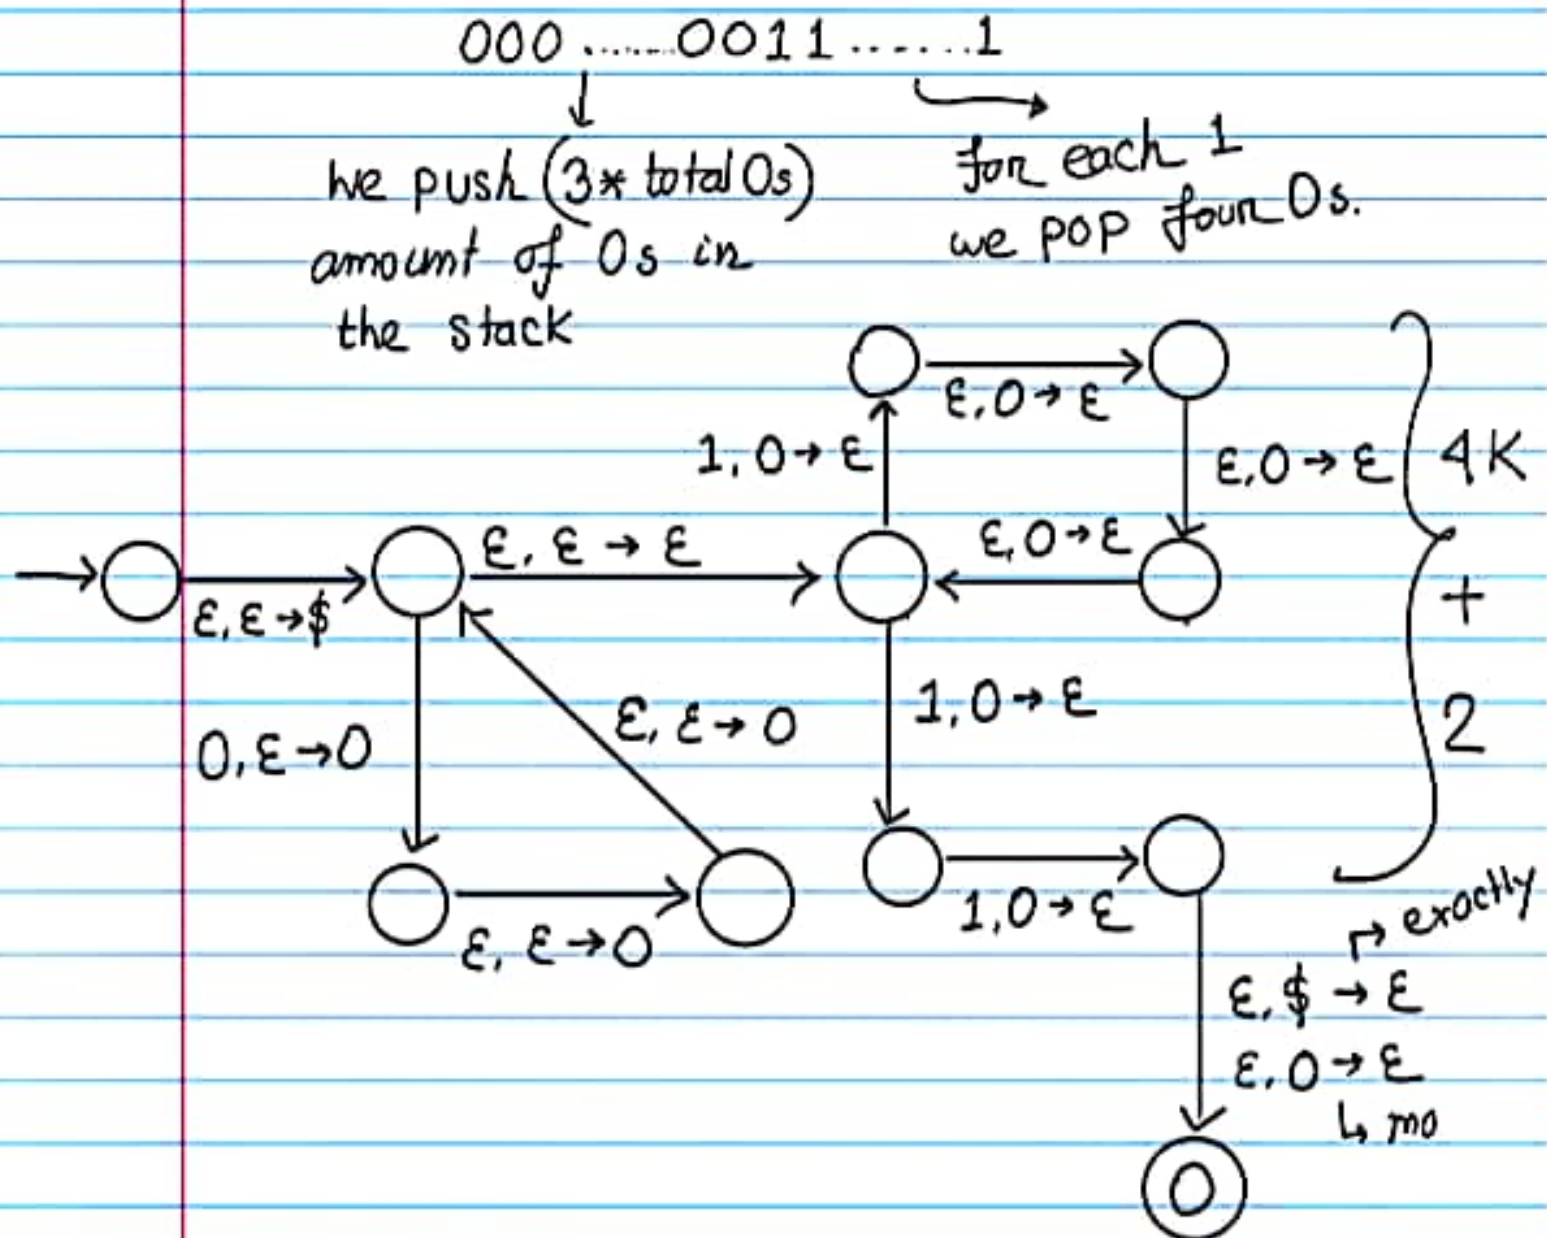 000......0011......1
we push (3* total 0s)
amount of 0s in
the stack
for each 1
we pop four 0s.
ε,0→ε
1,0→ε
ε,0→ε
4K
ε,ε→ε
ε,0→ε
ε,ε→$
+
1,0→ε
ε,ε→0
0,ε→0
2
1,0→ε
ε,ε→0
exactly
ε,$→ε
ε,0→ε
↳ mo
0